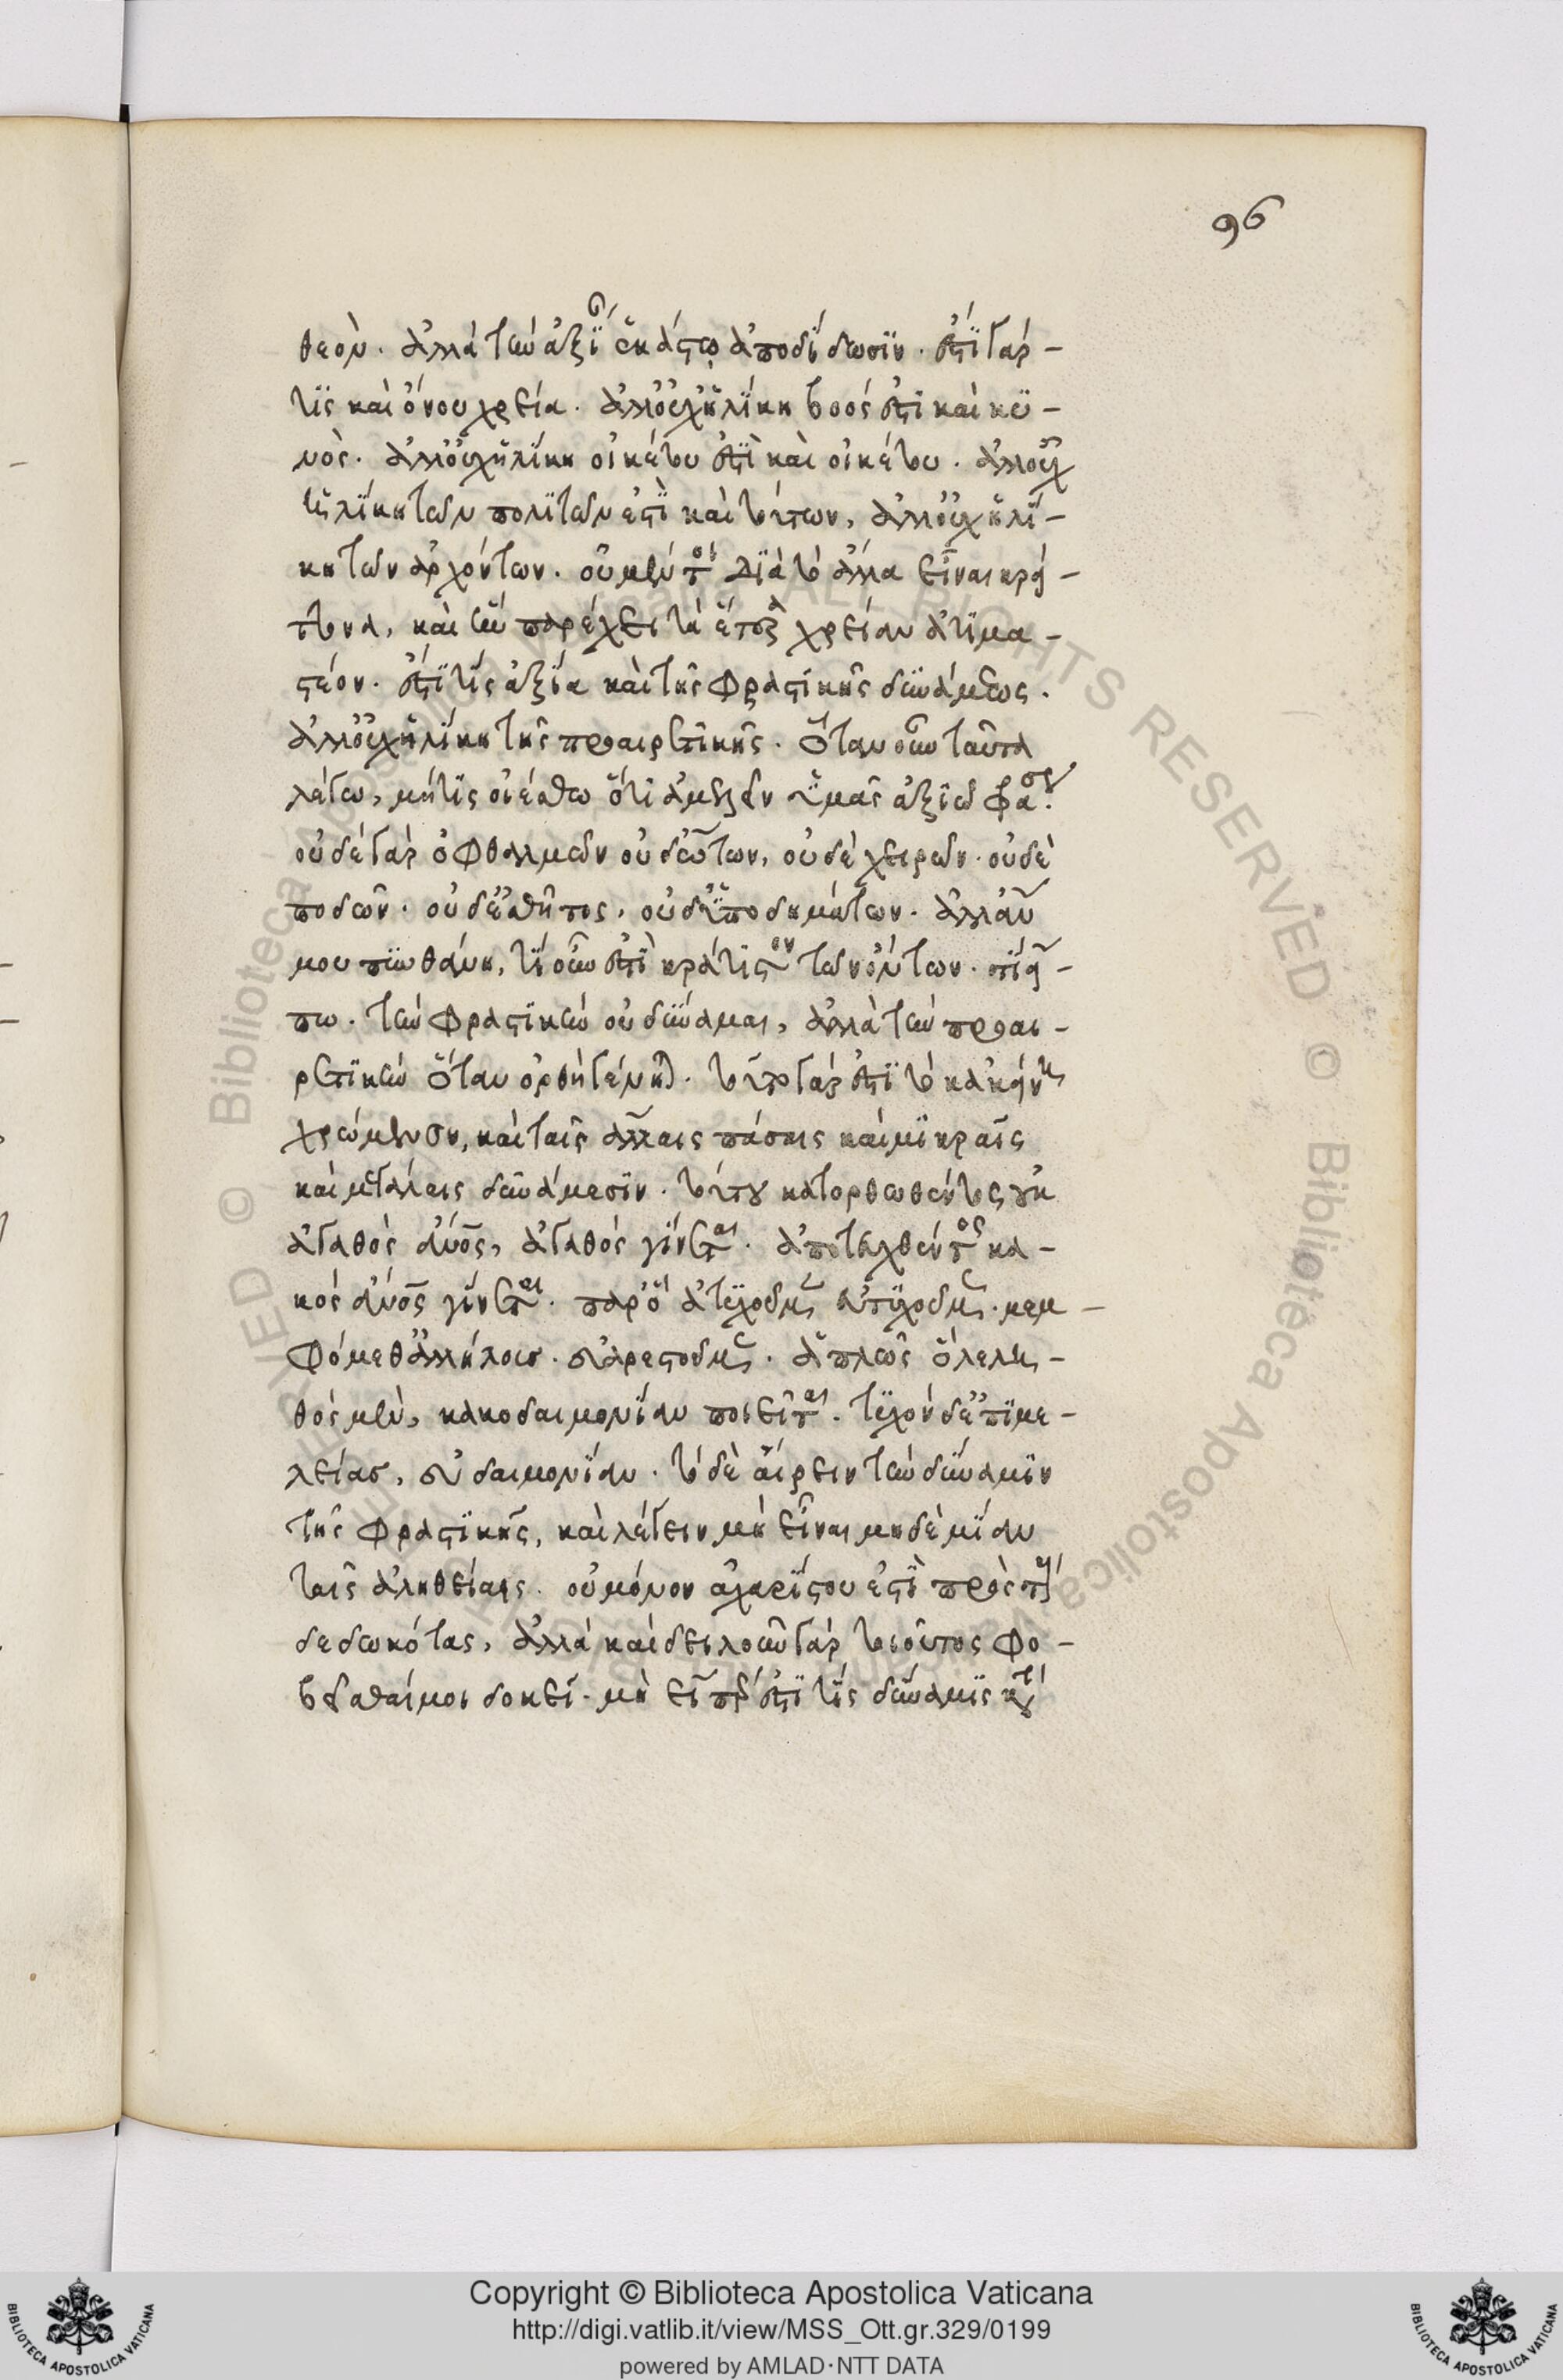 96
θεόν. ἀλλὰ τὴν ἀξίαν ἑκάστῳ ἀποδίδωσιν. ἔστι γάρ
τις καὶ ὄνου χρεία. ἀλλ' οὐχ ἡλίκη βοός ἐστι καὶ κυ-
νός. ἀλλ' οὐχ ἡλίκη οἰκέτου ἐστὶ καὶ οἰκέτου. ἀλλ' οὐχ
ἡλίκη τῶν πολιτῶν ἐστὶ καὶ τούτων, ἀλλ' οὐχ ἡλί-
κη τῶν ἀρχόντων. οὐ μέν τοι διὰ τὸ ἄλλα εἶναι κρεί-
τονα, καὶ ἣν παρέχει τὰ ἕτερα χρείαν ἀτιμα-
στέον. ἔστι τις ἀξία καὶ τῆς φραστικῆς δυνάμεως.
ἀλλ' οὐχ ἡλίκη τῆς προαιρετικῆς. ὅταν οὖν ταῦτα
λέγω, μή τις οἰέσθω ὅτι ἀμελεῖν ὑμᾶς ἀξιῶ φράσεως.
οὐδὲ γὰρ ὀφθαλμῶν οὐδ' ὤτων, οὐδὲ χειρῶν. οὐδὲ
ποδῶν. οὐδ' ἐσθῆτος, οὐδ' ὑποδημάτων. ἀλλ' ἄν
μου πυνθάνῃ, τί οὖν ἐστὶ κράτιστον τῶν ὄντων. τί εἴ-
πω. τὴν φραστικὴν οὐ δύναμαι, ἀλλὰ τὴν προαι-
ρετικὴν ὅταν ὀρθὴ γένηται. τοῦτο γάρ ἐστι τὸ κἀκείνῃ
χρώμενον, καὶ ταῖς ἄλλαις πάσαις καὶ μικραῖς
καὶ μεγάλαις δυνάμεσιν. τούτου κατορθωθέντος οὐκ
ἀγαθὸς ἄνος, ἀγαθὸς γίνεται. ἀποτευχθέντος κα-
κὸς ἄνος γίνεται. παρ' ὃ ἀτυχοῦμεν εὐτυχοῦμεν. μεμ-
φόμεθ' ἀλλήλους. εὐαρεστοῦμεν. ἁπλῶς ὃ λελη-
θὸς μὲν, κακοδαιμονίαν ποιεῖται. τυχὸν δ' ἐπιμε-
λείας, εὐδαιμονίαν. τὸ δὲ αἴρειν τὴν δύναμιν
τῆς φραστικῆς, καὶ λέγειν μὴ εἶναι μηδὲ μίαν
ταῖς ἀληθείαις. οὐ μόνον ἀχαρίστου ἐστὶ πρὸς τοὺς
δεδωκότας, ἀλλὰ καὶ δειλοῦ γὰρ τοιοῦτος φο-
βεῖσθαί μοι δοκεῖ. μὴ εἴπερ ἐστί τις δύναμις κατὰ
Copyright © Biblioteca Apostolica Vaticana
http://digi.vatlib.it/view/MSS_Ott.gr.329/0199
powered by AMLAD·NTT DATA